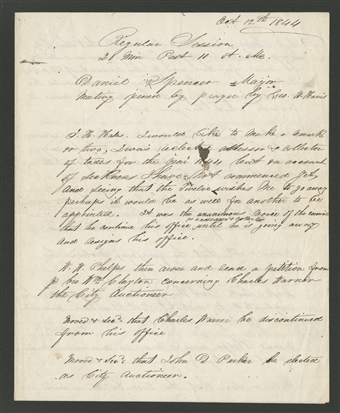 Oct 12th 1844
Regular Session
21 Min Past 10 A. M.
Daniel Spencer Major
Meeting opened by prayer by Geo. W. Harris
I would like to make a remark
or two, I was elected assessor & collector
of taxes for the year 1844 but on account
of sickness I have not commenced yet,
and seeing that the Twelve wishes me to go away
perhaps it would be as well for another to be
appointed. It was the unanimous voice of the council
that he continue his office until he is going away
and resigns his office.
W. W. Phelps then arose and read a petition from
Wm Clayton concerning Charles Warner
the City Auctioneer
Moved & Sec: that Charles Warner be discontinued
from his office
Moved & Sec: that John D Parker be elected
as City Auctioneer.